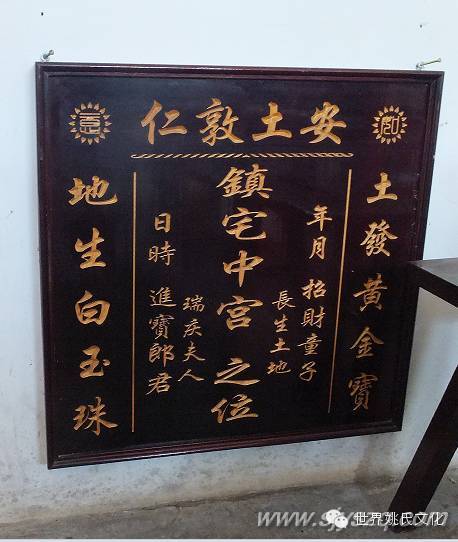 安土敦仁
土發黃金寶
年月 招財童子
長生土地
鎮宅中宮之位
瑞庆夫人
日時 進寶郎君
地生白玉珠
世界姚氏文化